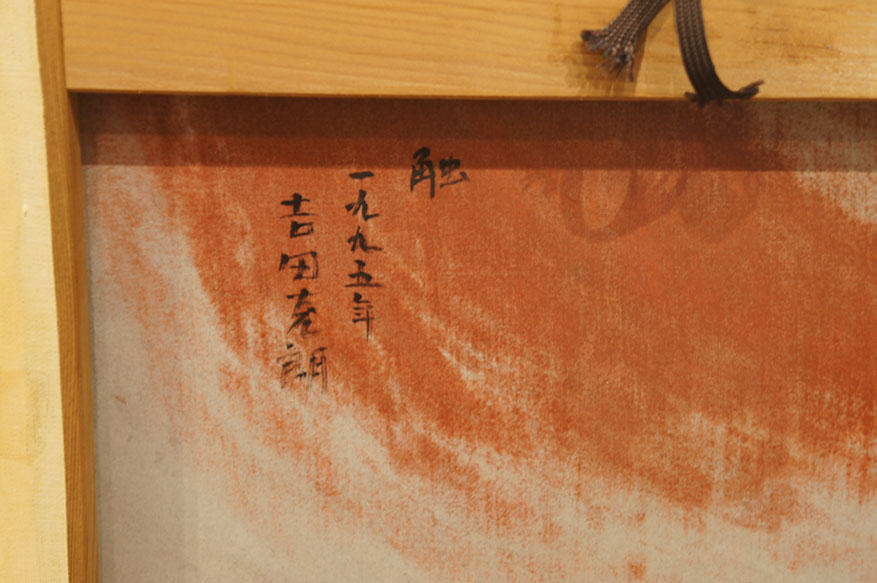 触
一九九五年
吉田克朗